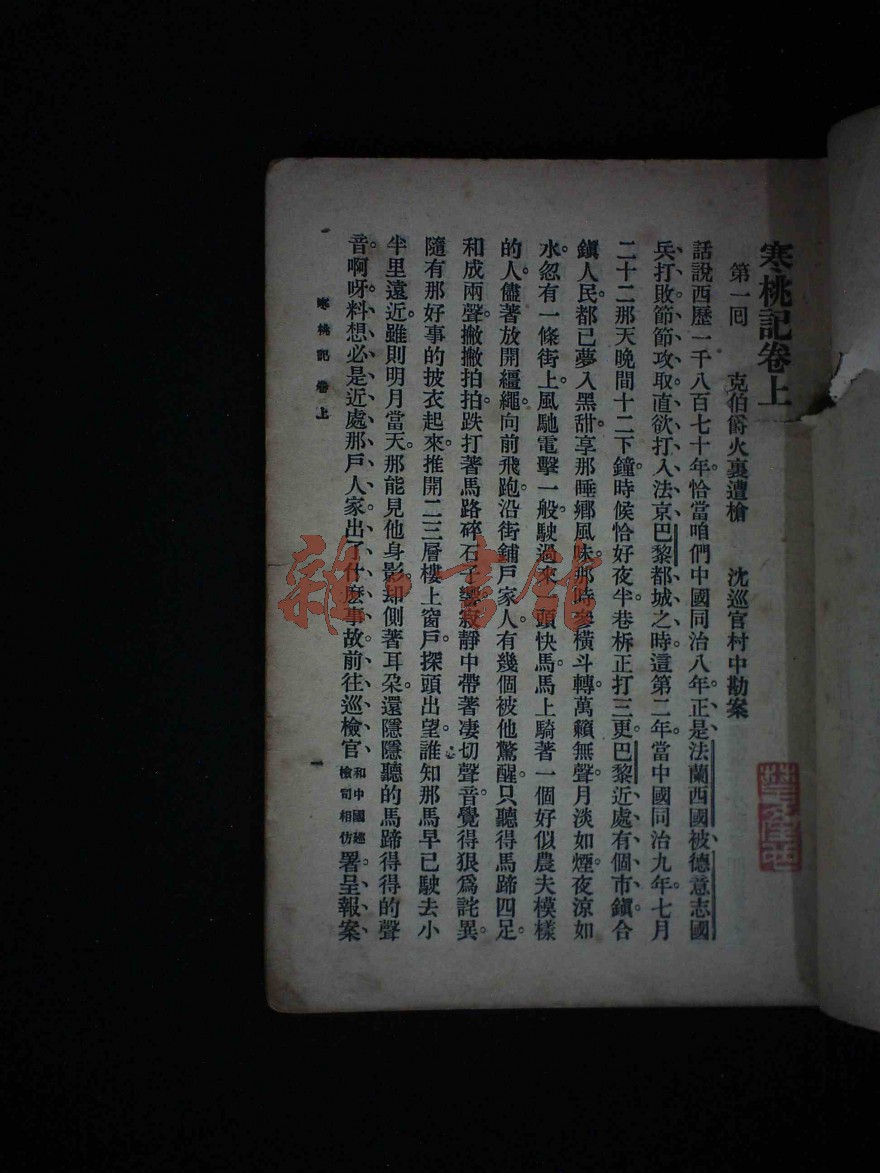 寒桃記卷上
第一囘　克伯爵火裏遭槍　沈巡官村中勘案
話說西歷一千八百七十年恰當咱們中國同治八年、正是、法蘭西國被德意志國
兵、打敗、節節攻取、直欲打入法京巴黎都城之時。這第二年。當中國同治九年。七月
二十二那天晚間十二下鐘時候恰好夜半巷柝正打三更。巴黎近處有個市鎭合
鎭人民都已夢入黑甜。享那睡鄉風味。那時參橫斗轉。萬籟無聲。月淡如煙。夜涼如
水。忽有一條街上。風馳電擊一般。駛過來一頭快馬。馬上騎著一個好似農夫模樣
的人。儘著放開繮繩。向前飛跑。沿街鋪戶家人。有幾個被他驚醒。只聽得馬蹄四足。
和成兩聲。撇撇拍拍。跌打著馬路碎石子響。寂靜中帶著凄切聲音。覺得狠爲詫異。
隨有那好事的披衣起來。推開二三層樓上窗戶。探頭出望。誰知那馬早已駛去小
半里遠近。雖則明月當天。那能見他身影。却側著耳朶。還隱隱聽的馬蹄得得的聲
音。啊呀、料想必是近處那戶人家出了什麽事故、前往巡檢官、和中國巡檢司相仿署呈報案、
寒桃記　卷上
一
雜·書館